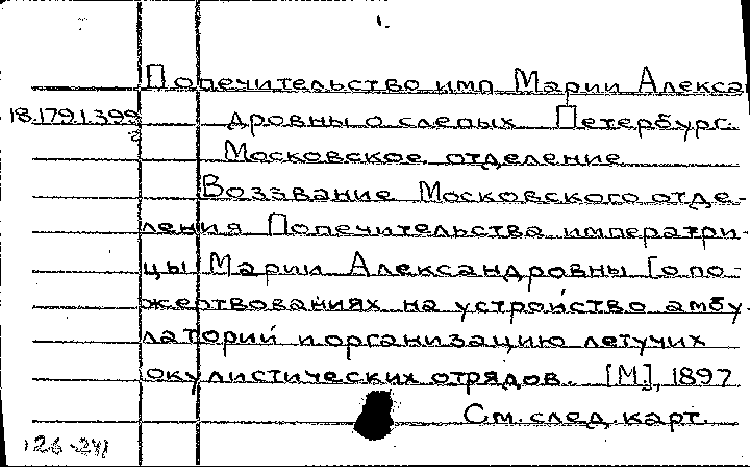 1.
Попечительство имп Марии Алекса
18.179.1.399 дровны о слепых Петербург.
2
Московское отделение
Воззвание Московского отде-
ления Попечительства императри-
цы Марии Александровны [о по-
жертвованиях на устройство амбу-
латорий и организацию летучих
окулистических отрядов. [М.], 1897
См. след. карт.
126-241